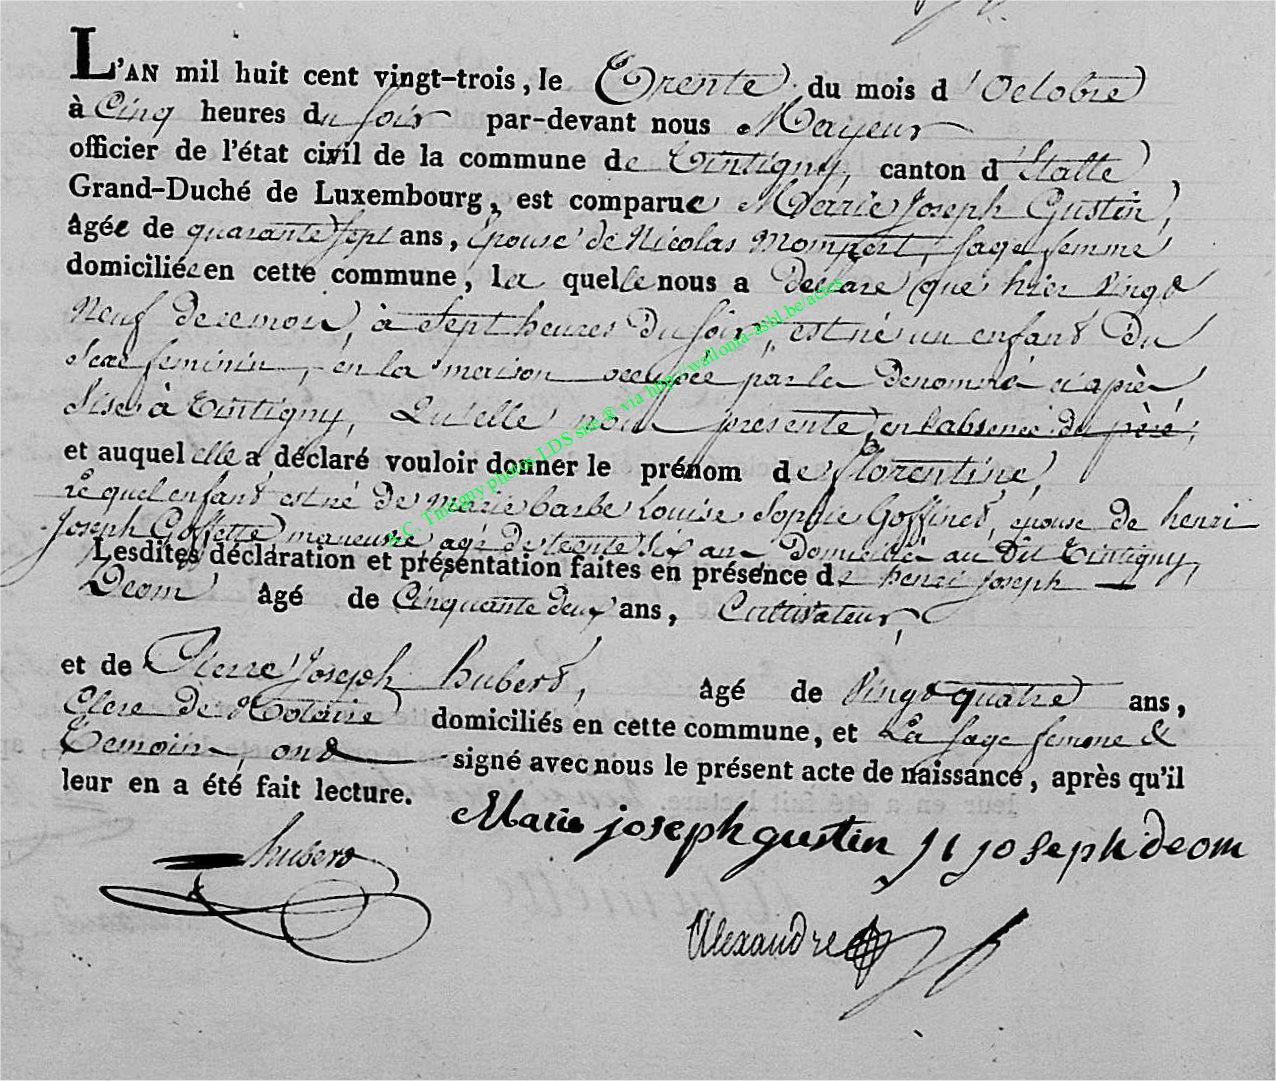 L'AN mil huit cent vingt-trois, le Trente du mois d'Octobre
à Cinq heures du soir par-devant nous Mayeur
officier de l'état civil de la commune de Tintigny, canton d'Etalle
Grand-Duché de Luxembourg, est comparue Marie Joseph Gustin,
âgée de quarante sept ans, Epouse de Nicolas Monpert, sage femme
domiciliée en cette commune, la quelle nous a Déclaré que hier vingt
Neuf de ce mois, à Sept heures Du soir, est né un enfant Du
Sexe feminin, en la maison occupée par le Denommé ci après
Sise à Tintigny, Qu'elle nous présente, en l'absence du père,
et auquel elle a déclaré vouloir donner le prénom de Florentine,
Le quel enfant est né de Marie barbe Louise Sophie Goffinet, epouse de henri
Joseph Goffette maneuvre agé de trente six ans Domicilié au Dit Tintigny,
Lesdites déclaration et présentation faites en présence de henri Joseph
Deom âgé de Cinquante deux ans, Cultivateur,
et de Pierre Joseph hubert, âgé de Vingt quatre ans,
Clerc de Notaire domiciliés en cette commune, et La sage femme &
Temoins, ont signé avec nous le présent acte de naissance, après qu'il
leur en a été fait lecture.
Marie joseph gustin h j joseph deom
hubert
Alexandre
A.C. Tintigny photos LDS site ® via http://wallonia-asbl.be/actes